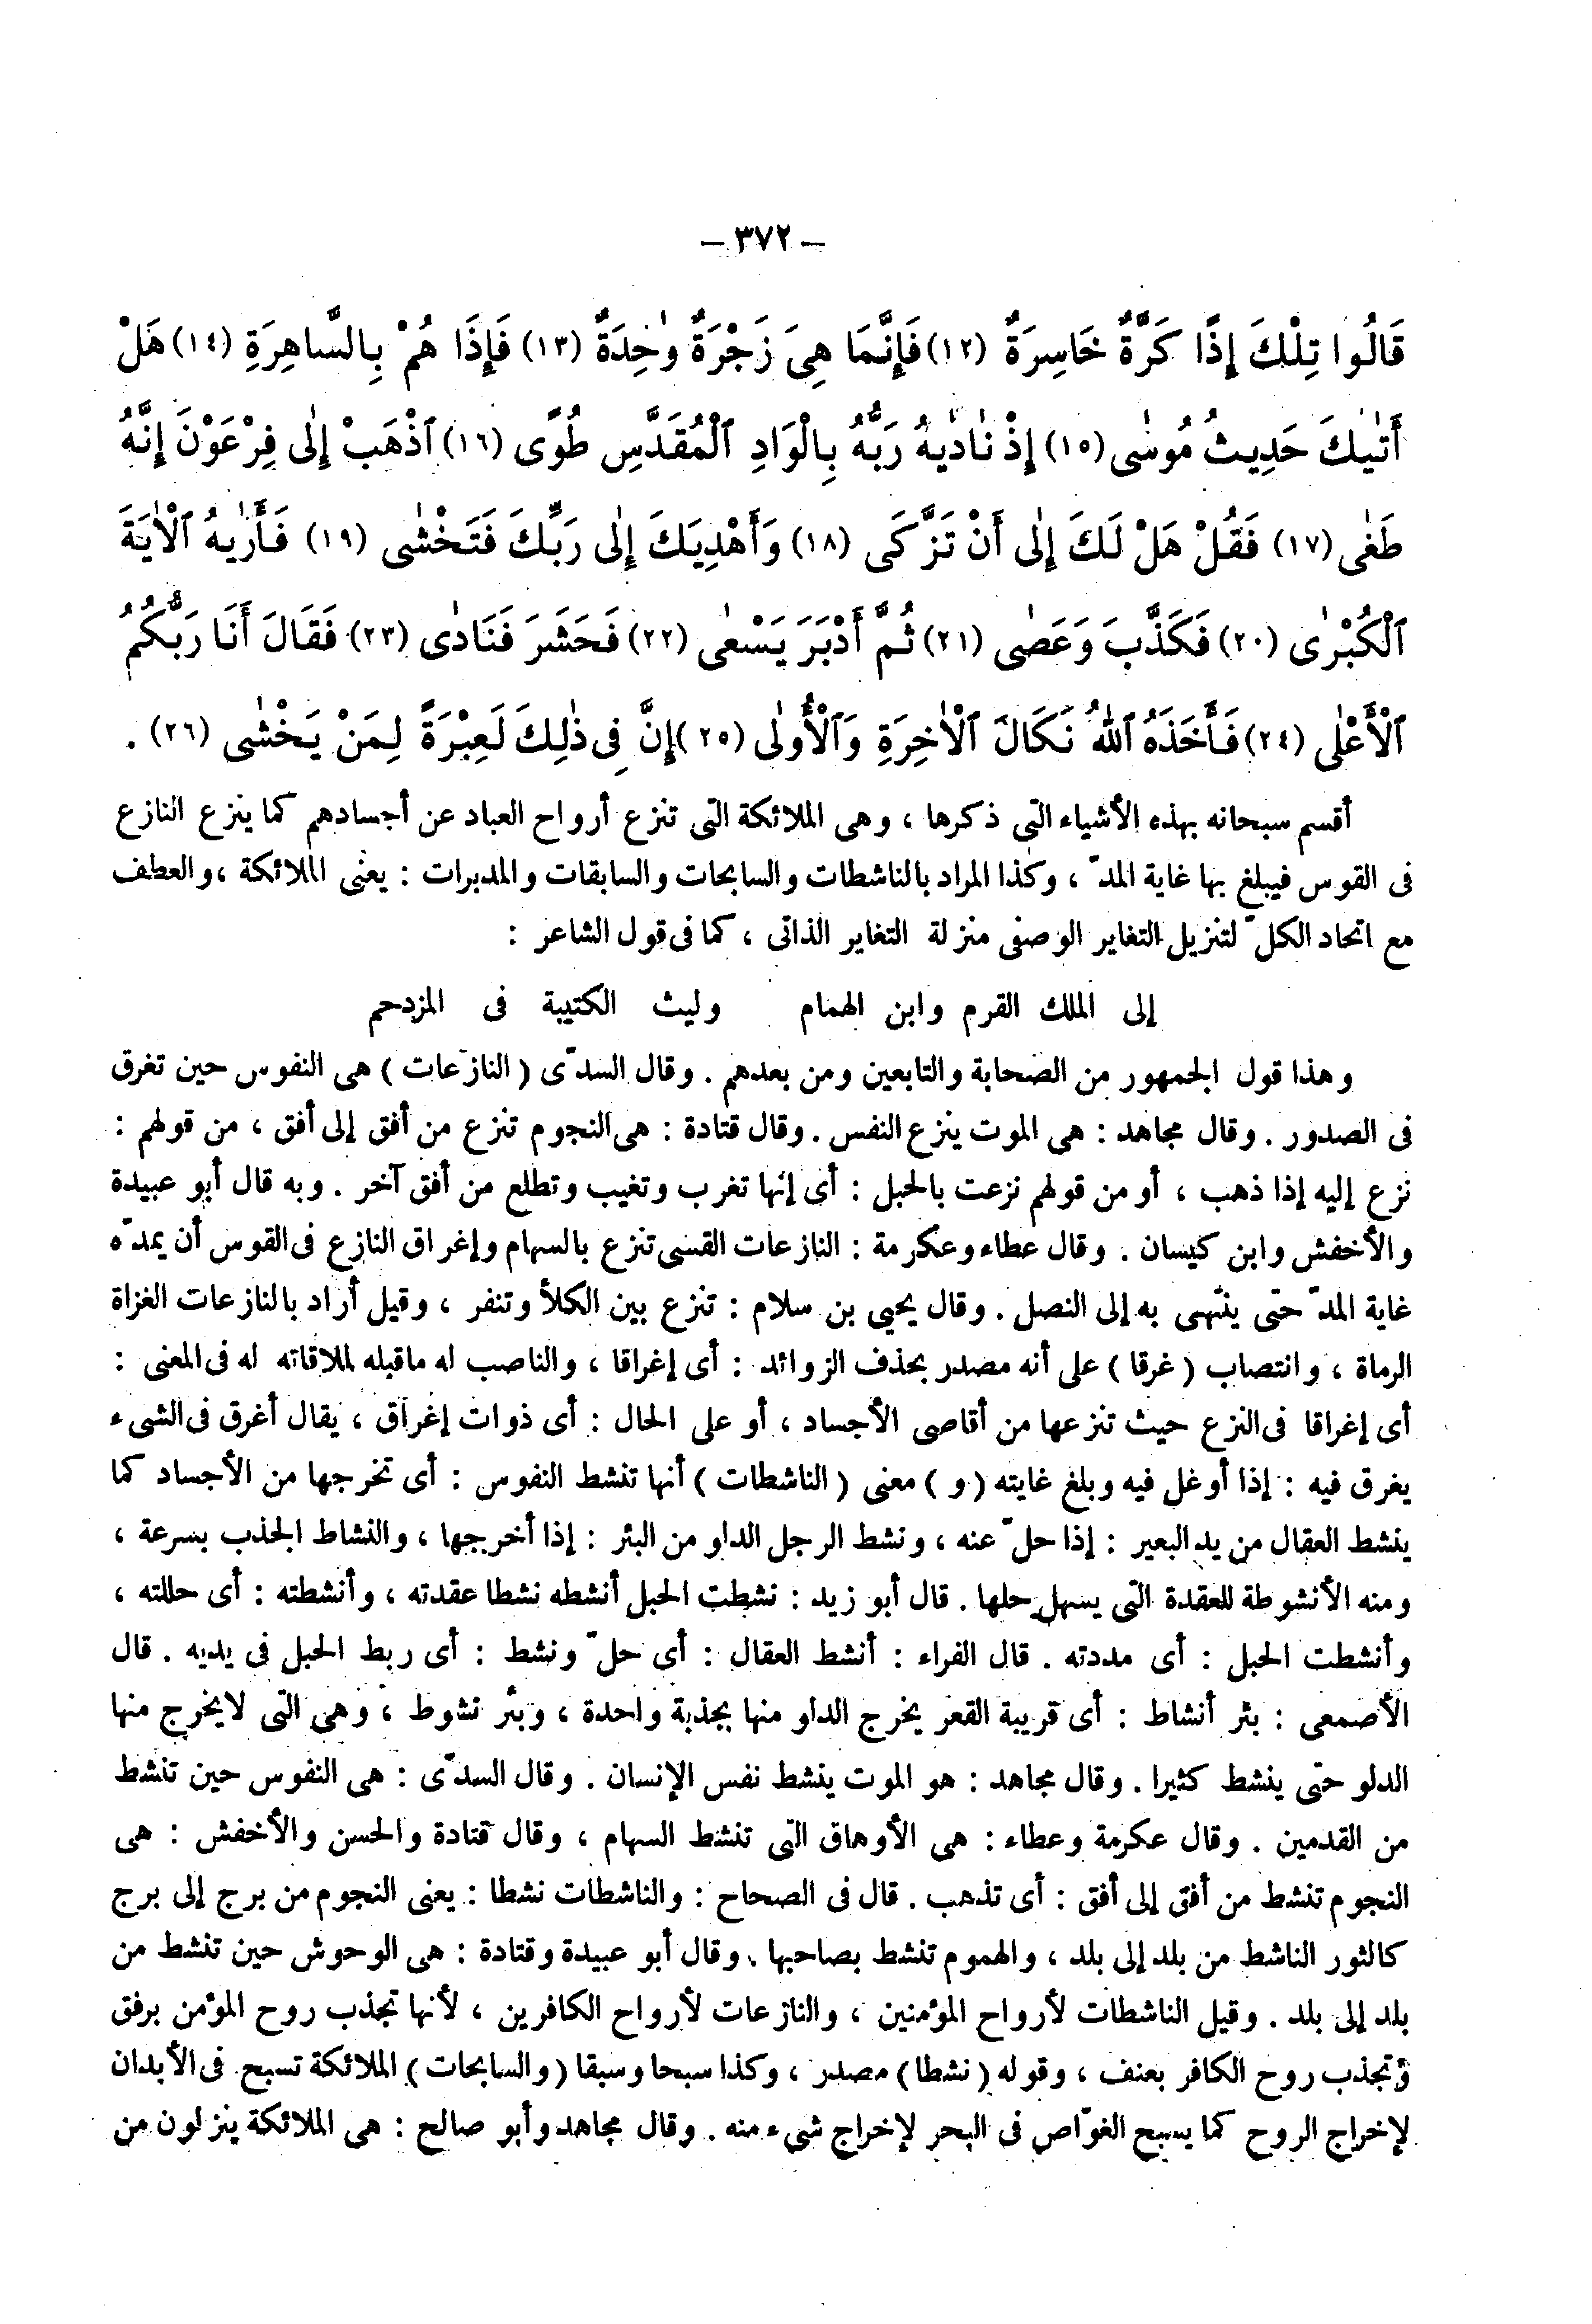 – ٣٧٢ –
قَالُوا تِلْكَ إِذًا كَرَّةٌ خَاسِرَةٌ (١٢) فَإِنَّمَا هِيَ زَجْرَةٌ وٰحِدَةٌ (١٣) فَإِذَا هُمْ بِالسَّاهِرَةِ (١٤) هَلْ
أَتٰيكَ حَدِيثُ مُوسٰى (١٥) إِذْ نٰادٰيهُ رَبُّهُ بِالْوَادِ ٱلْمُقَدَّسِ طُوًى (١٦) ٱذْهَبْ إِلٰى فِرْعَوْنَ إِنَّهُ
طَغٰى (١٧) فَقُلْ هَلْ لَكَ إِلٰى أَنْ تَزَّكَى (١٨) وَأَهْدِيَكَ إِلٰى رَبِّكَ فَتَخْشٰى (١٩) فَأَرٰيهُ ٱلْاٰيَةَ
ٱلْكُبْرٰى (٢٠) فَكَذَّبَ وَعَصٰى (٢١) ثُمَّ أَدْبَرَ يَسْعٰى (٢٢) فَحَشَرَ فَنَادٰى (٢٣) فَقَالَ أَنَا رَبُّكُمُ
ٱلْأَعْلٰى (٢٤) فَأَخَذَهُ ٱللّٰهُ نَكَالَ ٱلْاٰخِرَةِ وَٱلْأُولٰى (٢٥) إِنَّ فِى ذٰلِكَ لَعِبْرَةً لِمَنْ يَخْشٰى (٢٦) .
أقسم سبحانه بهذه الأشياء التى ذكرها ، وهى الملائكة التى تنزع أرواح العباد عن أجسادهم كما ينزع النازع
فى القوس فيبلغ بها غاية المدّ ، وكذا المراد بالناشطات والسابحات والسابقات والمدبرات : يعنى الملائكة ، والعطف
مع اتحاد الكلّ لتنزيل التغاير الوصفى منزلة التغاير الذاتى ، كما فى قول الشاعر :
إلى الملك القرم وابن الهمام وليث الكتيبة فى المزدحم
وهذا قول الجمهور من الصحابة والتابعين ومن بعدهم . وقال السدّى (النازعات) هى النفوس حين تغرق
فى الصدور . وقال مجاهد : هى الموت ينزع النفس . وقال قتادة : هى النجوم تنزع من أفق إلى أفق ، من قولهم :
نزع إليه إذا ذهب ، أو من قولهم نزعت بالحبل : أى إنها تغرب وتغيب وتطلع من أفق آخر . وبه قال أبو عبيدة
والأخفش وابن كيسان . وقال عطاء وعكرمة : النازعات القسى تنزع بالسهام وإغراق النازع فى القوس أن يمدّه
غاية المدّ حتى ينتهى به إلى النصل . وقال يحيى بن سلام : تنزع بين الكلأ وتنفر ، وقيل أراد بالنازعات الغزاة
الرماة ، وانتصاب (غرقا) على أنه مصدر بحذف الزوائد : أى إغراقا ، والناصب له ماقبله لملاقاته له فى المعنى :
أى إغراقا فى النزع حيث تنزعها من أقاصى الأجساد ، أو على الحال : أى ذوات إغراق ، يقال أغرق فى الشىء
يغرق فيه : إذا أوغل فيه وبلغ غايته (و) معنى (الناشطات) أنها تنشط النفوس : أى تخرجها من الأجساد كما
ينشط العقال من يد البعير : إذا حلّ عنه ، ونشط الرجل الدلو من البئر : إذا أخرجها ، والنشاط الجذب بسرعة ،
ومنه الأنشوطة للعقدة التى يسهل حلها . قال أبو زيد : نشطت الحبل أنشطه نشطا عقدته ، وأنشطته : أى حللته ،
وأنشطت الحبل : أى مددته . قال الفراء : أنشط العقال : أى حلّ ونشط : أى ربط الحبل فى يديه . قال
الأصمعى : بئر أنشاط : أى قريبة القعر يخرج الدلو منها بجذبة واحدة ، وبئر نشوط ، وهى التى لايخرج منها
الدلو حتى ينشط كثيرا . وقال مجاهد : هو الموت ينشط نفس الإنسان . وقال السدّى : هى النفوس حين تنشط
من القدمين . وقال عكرمة وعطاء : هى الأوهاق التى تنشط السهام ، وقال قتادة والحسن والأخفش : هى
النجوم تنشط من أفق إلى أفق : أى تذهب . قال فى الصحاح : والناشطات نشطا : يعنى النجوم من برج إلى برج
كالثور الناشط من بلد إلى بلد ، والهموم تنشط بصاحبها . وقال أبو عبيدة وقتادة : هى الوحوش حين تنشط من
بلد إلى بلد . وقيل الناشطات لأرواح المؤمنين ، والنازعات لأرواح الكافرين ، لأنها تجذب روح المؤمن برفق
وتجذب روح الكافر بعنف ، وقوله (نشطا) مصدر ، وكذا سبحا وسبقا (والسابحات) الملائكة تسبح فى الأبدان
لإخراج الروح كما يسبح الغوّاص فى البحر لإخراج شىء منه . وقال مجاهد وأبو صالح : هى الملائكة ينزلون من